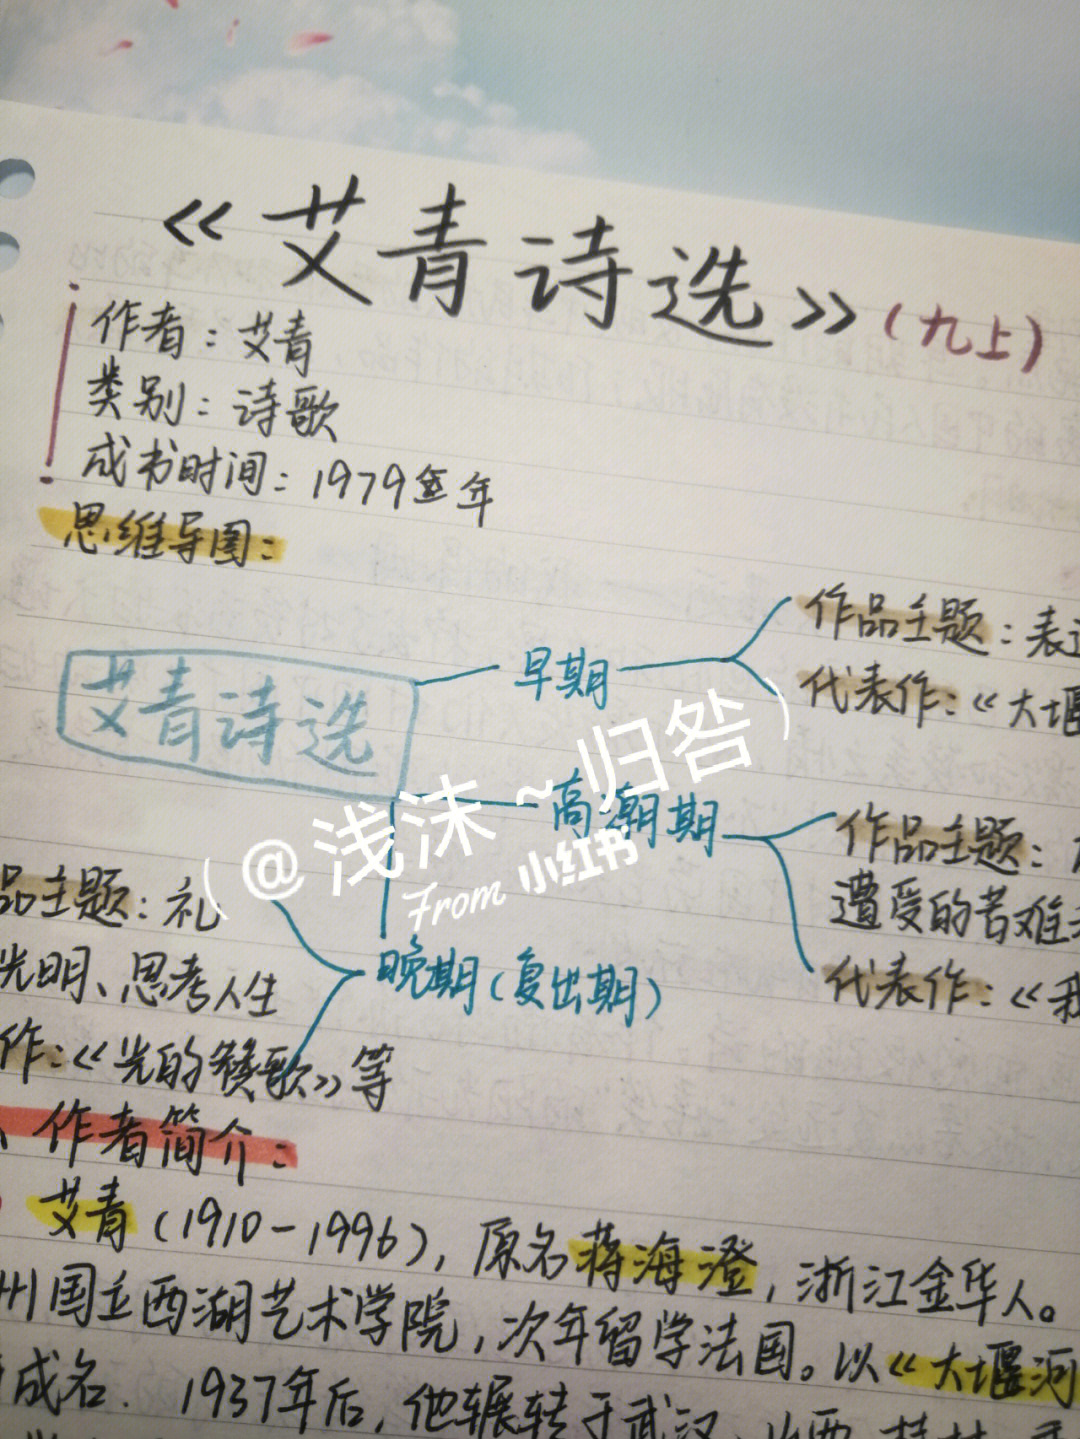 《艾青诗选》(九上)
作者：艾青
类别：诗歌
成书时间：1979年
思维导图：
艾青诗选
早期
作品主题：表达
代表作：《大堰
高潮期
作品主题：
遭受的苦难
代表作：《我
晚期（复出期）
品主题：礼
光明、思考人生
作：《光的赞歌》等
作者简介：
艾青（1910-1996），原名蒋海澄，浙江金华人。
州国立西湖艺术学院，次年留学法国。以《大堰河
成名．1937年后，他辗转于武汉、山西、桂林、
(@浅沫~归咎)
From 小红书